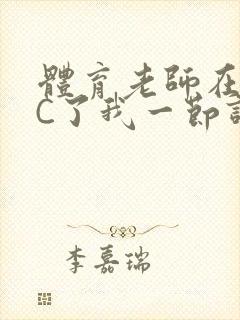 體育老師在
C了我一節
李嘉瑞